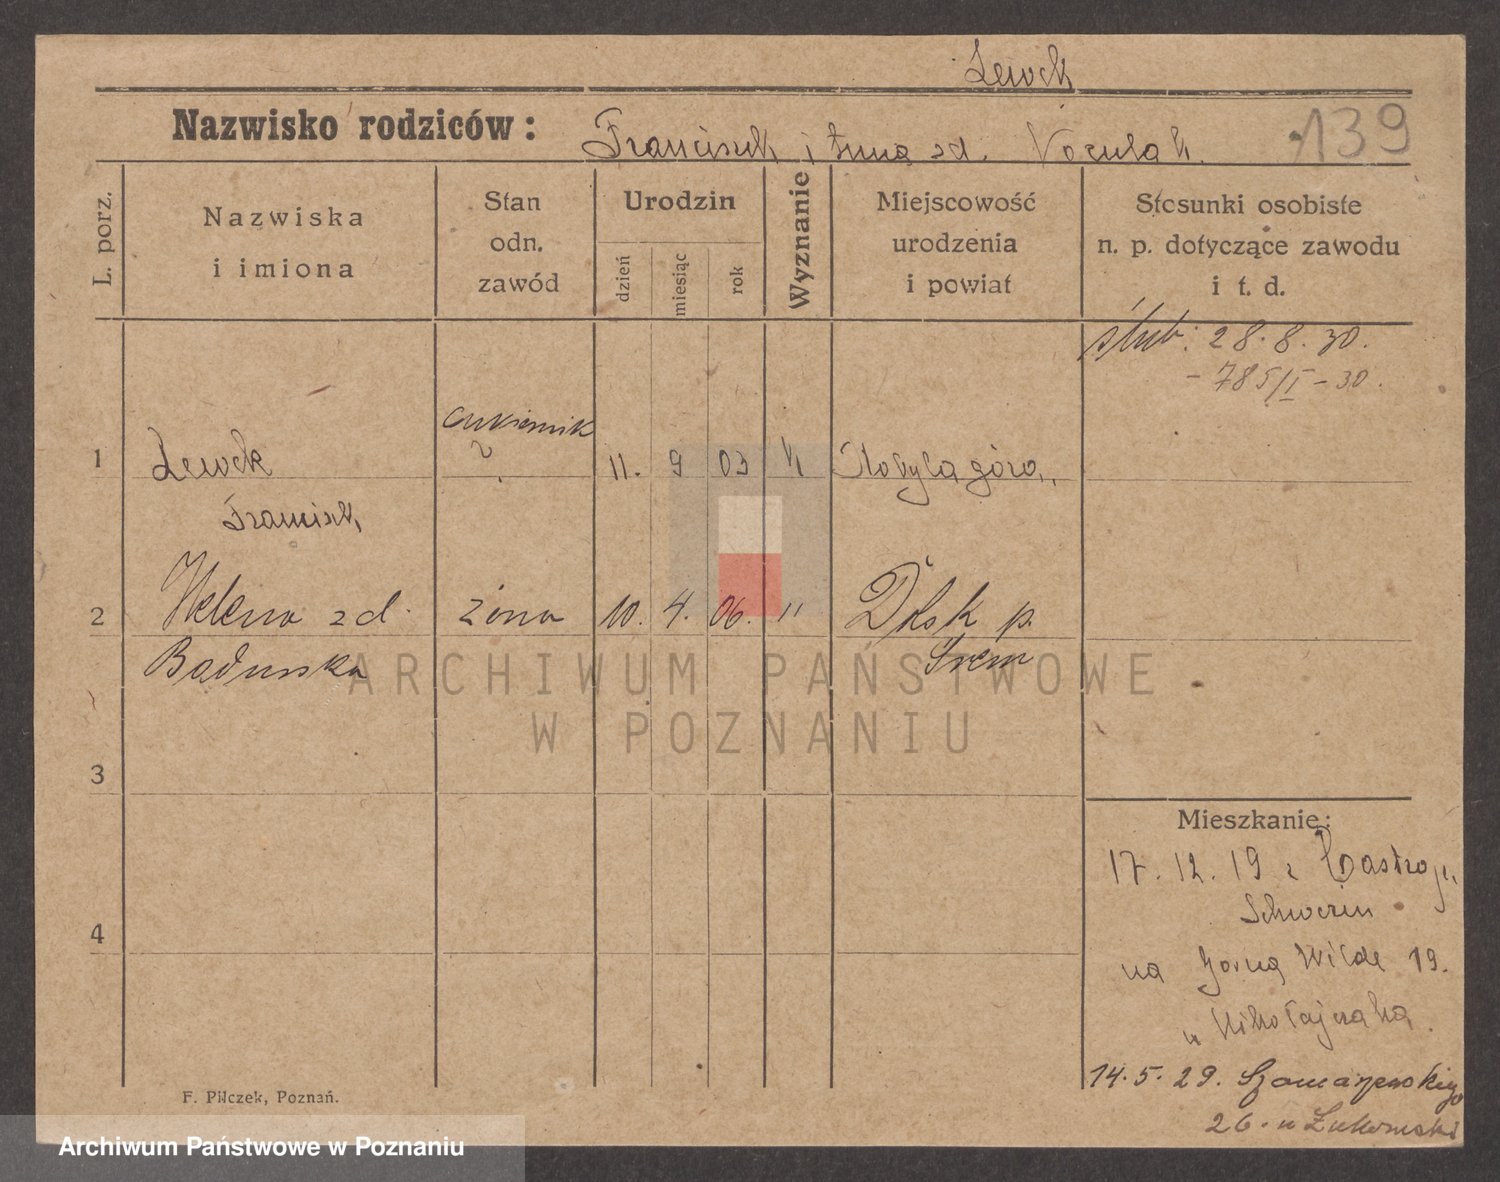 Lewek
Nazwisko rodziców: Franciszek i Anna zd.
139
L. porz.
Nazwiska
i imiona
Stan
odn.
zawód
Urodzin
dzień
miesiąc
rok
Wyznanie
Miejscowość
urodzenia
i powiat
Stosunki osobiste
n. p. dotyczące zawodu
i t. d.
ślub: 28.8.30.
- 785/I - 30.
cukiernik
1 Lewek 11. 9 03 k Kobylagóra.
Franciszek
2 Helena zd. żona 10. 4. 06. " Dolsk p.
Badurska Śrem
3
4
Mieszkanie:
17. 12. 19 z
Schwerin
na Górną Wildę 19.
u Mikołajczaka.
14. 5. 29. Szamarzewskiego
26. u Żukowski
F. Pilczek, Poznań.
ARCHIWUM PAŃSTWOWE
W POZNANIU
Archiwum Państwowe w Poznaniu